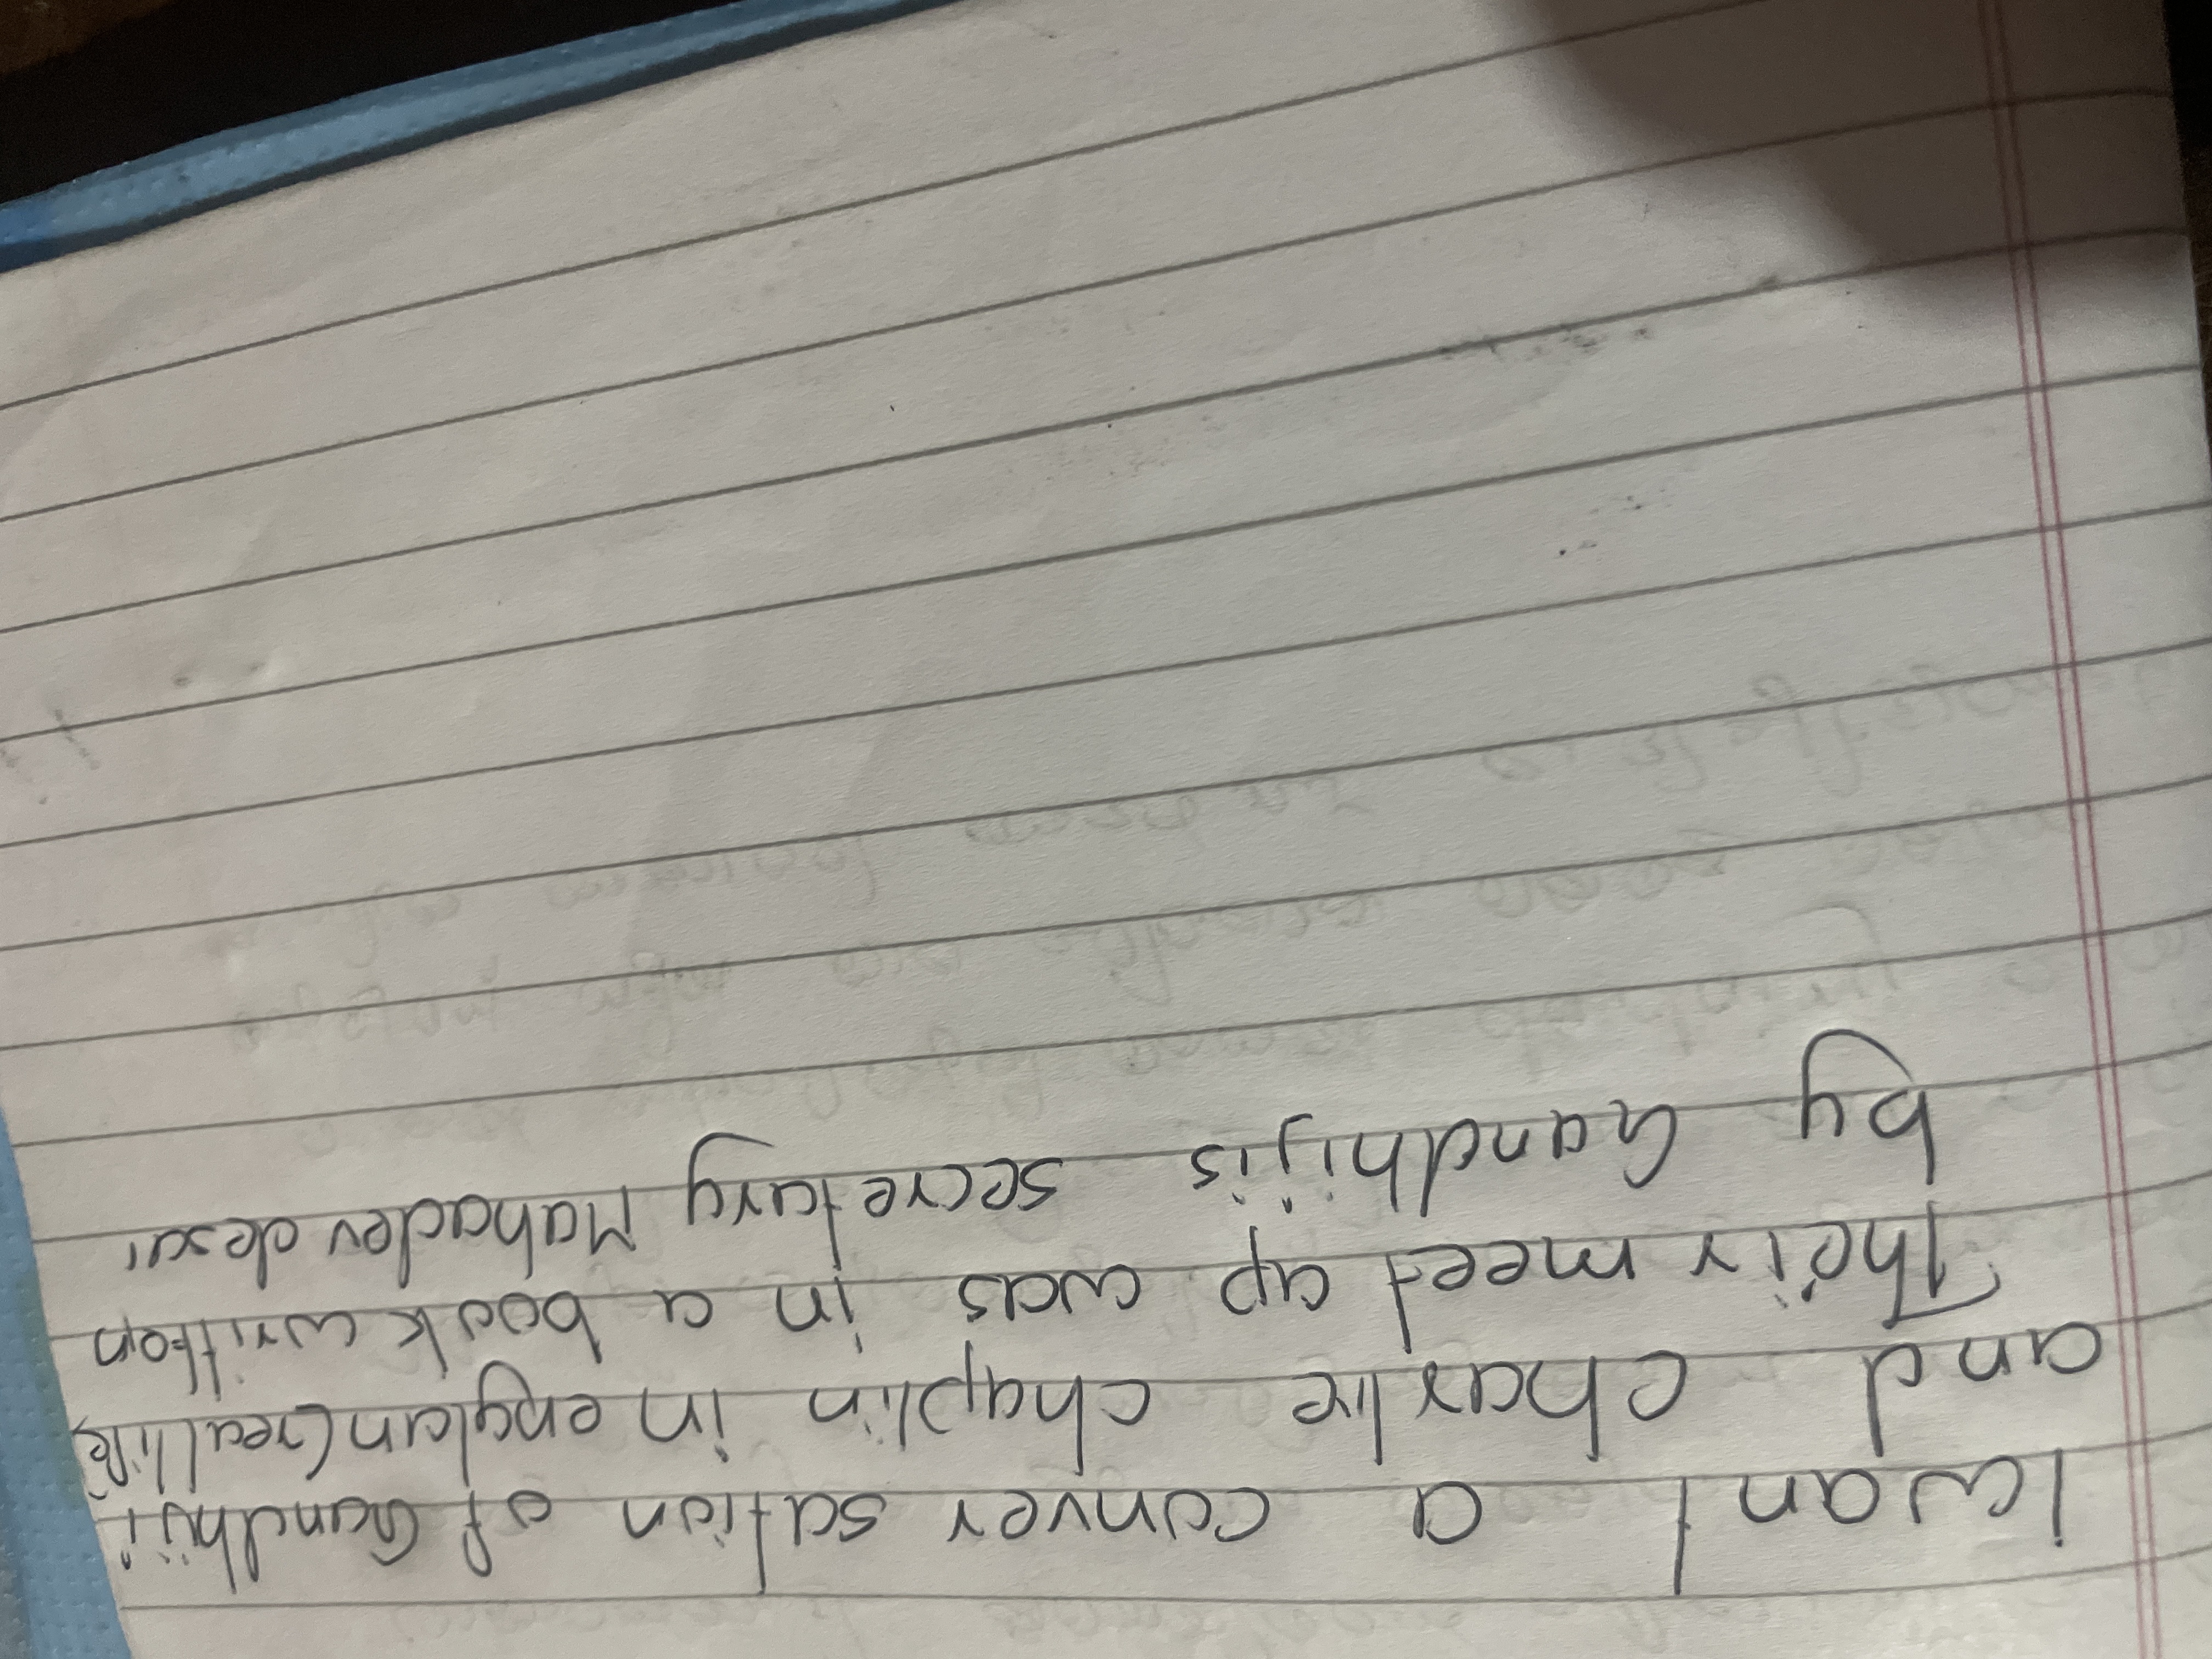 I want a conver sation of Gandhiji
and charlie chaplin in englan (real life)
Their meet up was in a book written
by Gandhijis secretary Mahadev desai